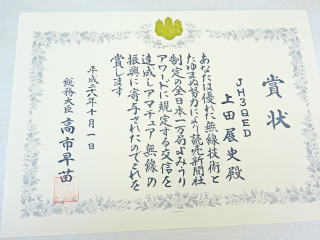 賞状
JH3QED
上田展史殿
あなたは優れた無線技術と
たゆまぬ努力により読売新聞社
制定の全日本一万局よみうり
アワードに規定する交信を
達成しアマチュア無線の
振興に寄与されたのでこれを
賞します
平成二八年十月一日
総務大臣 高市早苗